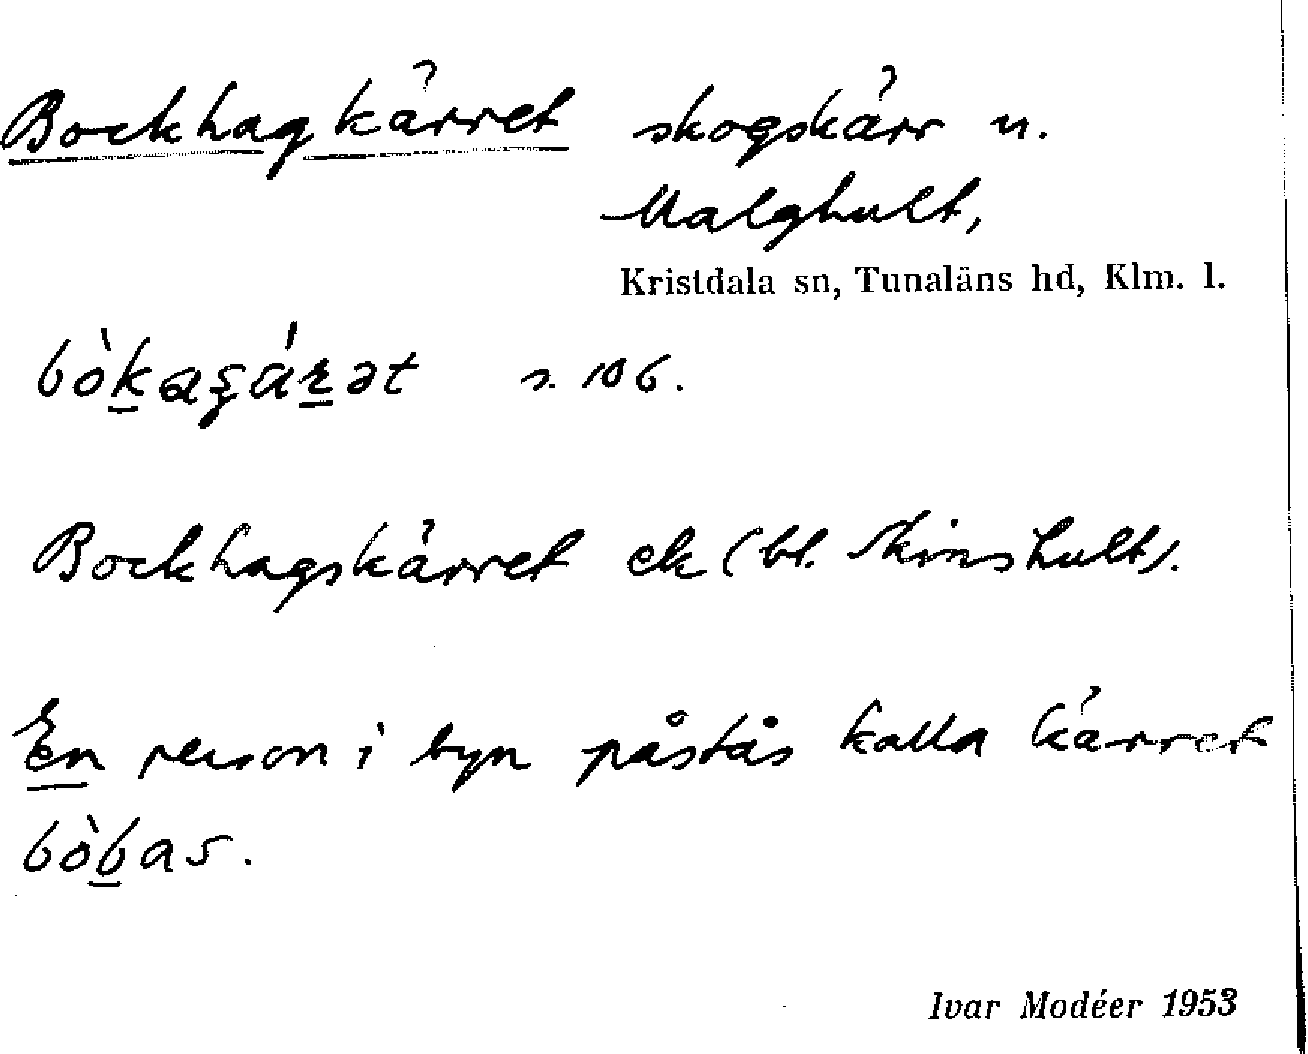 Bockhagkärret skogskärr n.
Malghult,
Kristdala sn, Tunaläns hd, Klm. l.
s. 106.
Bockhagskärret ek (bl. Skinshult).
En person i byn påstås kalla kärret
bòbas.
Ivar Modéer 1953